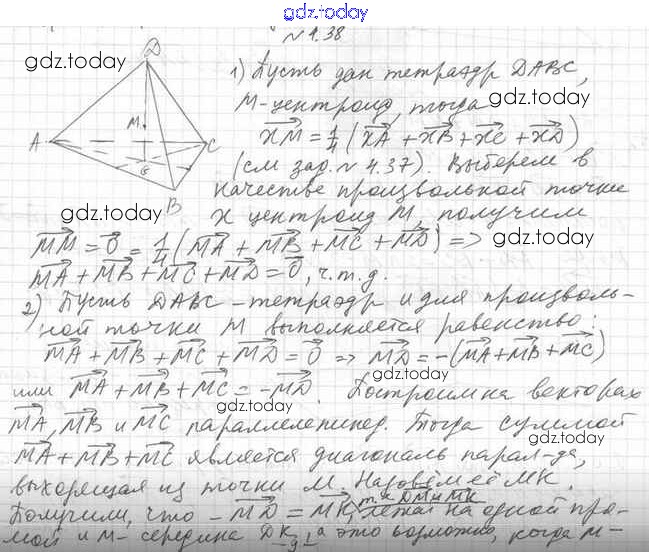 gdz.today
№ 4.38
D
1) Пусть дан тетраэдр DABC,
M-центроид, тогда
XM = 1/4 (XA + XB + XC + XD)
(см зад. № 4.37). Выберем в
качестве произвольной точки
X центроид M, получим
A
M
C
G
B
MM = 0 = 1/4 (MA + MB + MC + MD) =>
MA + MB + MC + MD = 0, ч.т.д.
2) Пусть DABC - тетраэдр и для произволь-
ной точки M выполняется равенство:
MA + MB + MC + MD = 0 => MD = -(MA+MB+MC)
или MA + MB + MC = -MD. Построим на векторах
MA, MB и MC параллелепипед. Тогда суммой
MA + MB + MC является диагональ парал-да,
выходящая из точки M. Назовём её MK.
Получили, что -MD = MK, т.к DM и MK лежат на одной пря-
мой и M- середина DK, а это возможно, когда M-
gdz.today
gdz.today
gdz.today
gdz.today
gdz.today
gdz.today
gdz.today
gdz.today
gdz.today